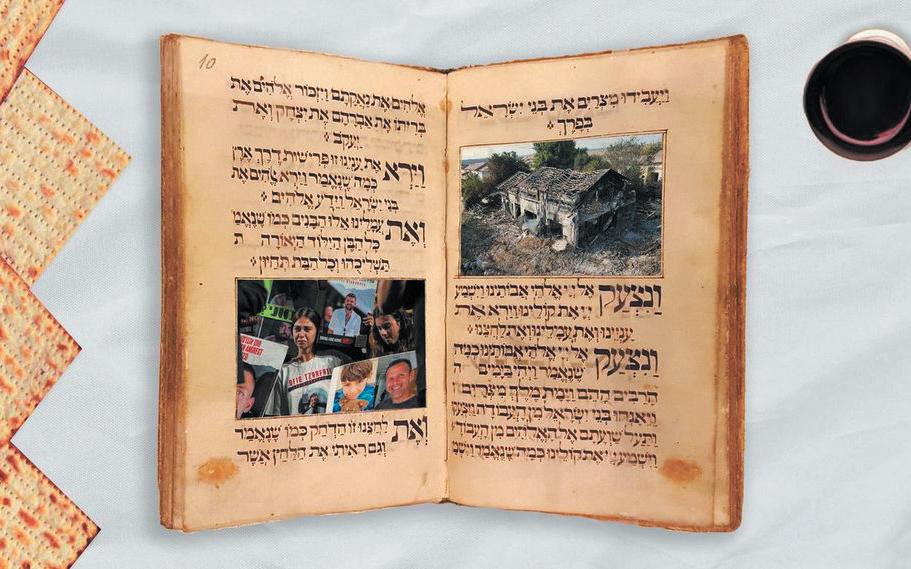 ויעבידו מצרים את בני ישראל
בפרך
ונצעק אל יי אלהי אבותינו וישמע
יי את קולינו וירא את
ענינו ואת עמלינו ואת לחצנו
ונצעק אל יי אלהי אבותינו כמה
שנאמר ויהי בימים ה
הרבים ההם וימת מלך מצרים
ויאנחו בני ישראל מן העבודה ויצעקו
ותעל שועתם אל האלהים מן העבודה
וישמע יי את קולינו כמה שנאמר וישמע
10
אלהים את נאקתם ויזכור אלהים את
בריתו את אברהם את יצחק ואת
יעקב
וירא את ענינו זו פרישות דרך ארץ
כמה שנאמר וירא אלהים את
בני ישראל וידע אלהים
ואת עמלינו אלו הבנים כמו שנאמר
כל הבן הילוד היאורה ת
תשליכהו וכל הבת תחיון
OFIR TZARFATI
ואת לחצנו זו הדחק כמו שנאמר
וגם ראיתי את הלחץ אשר